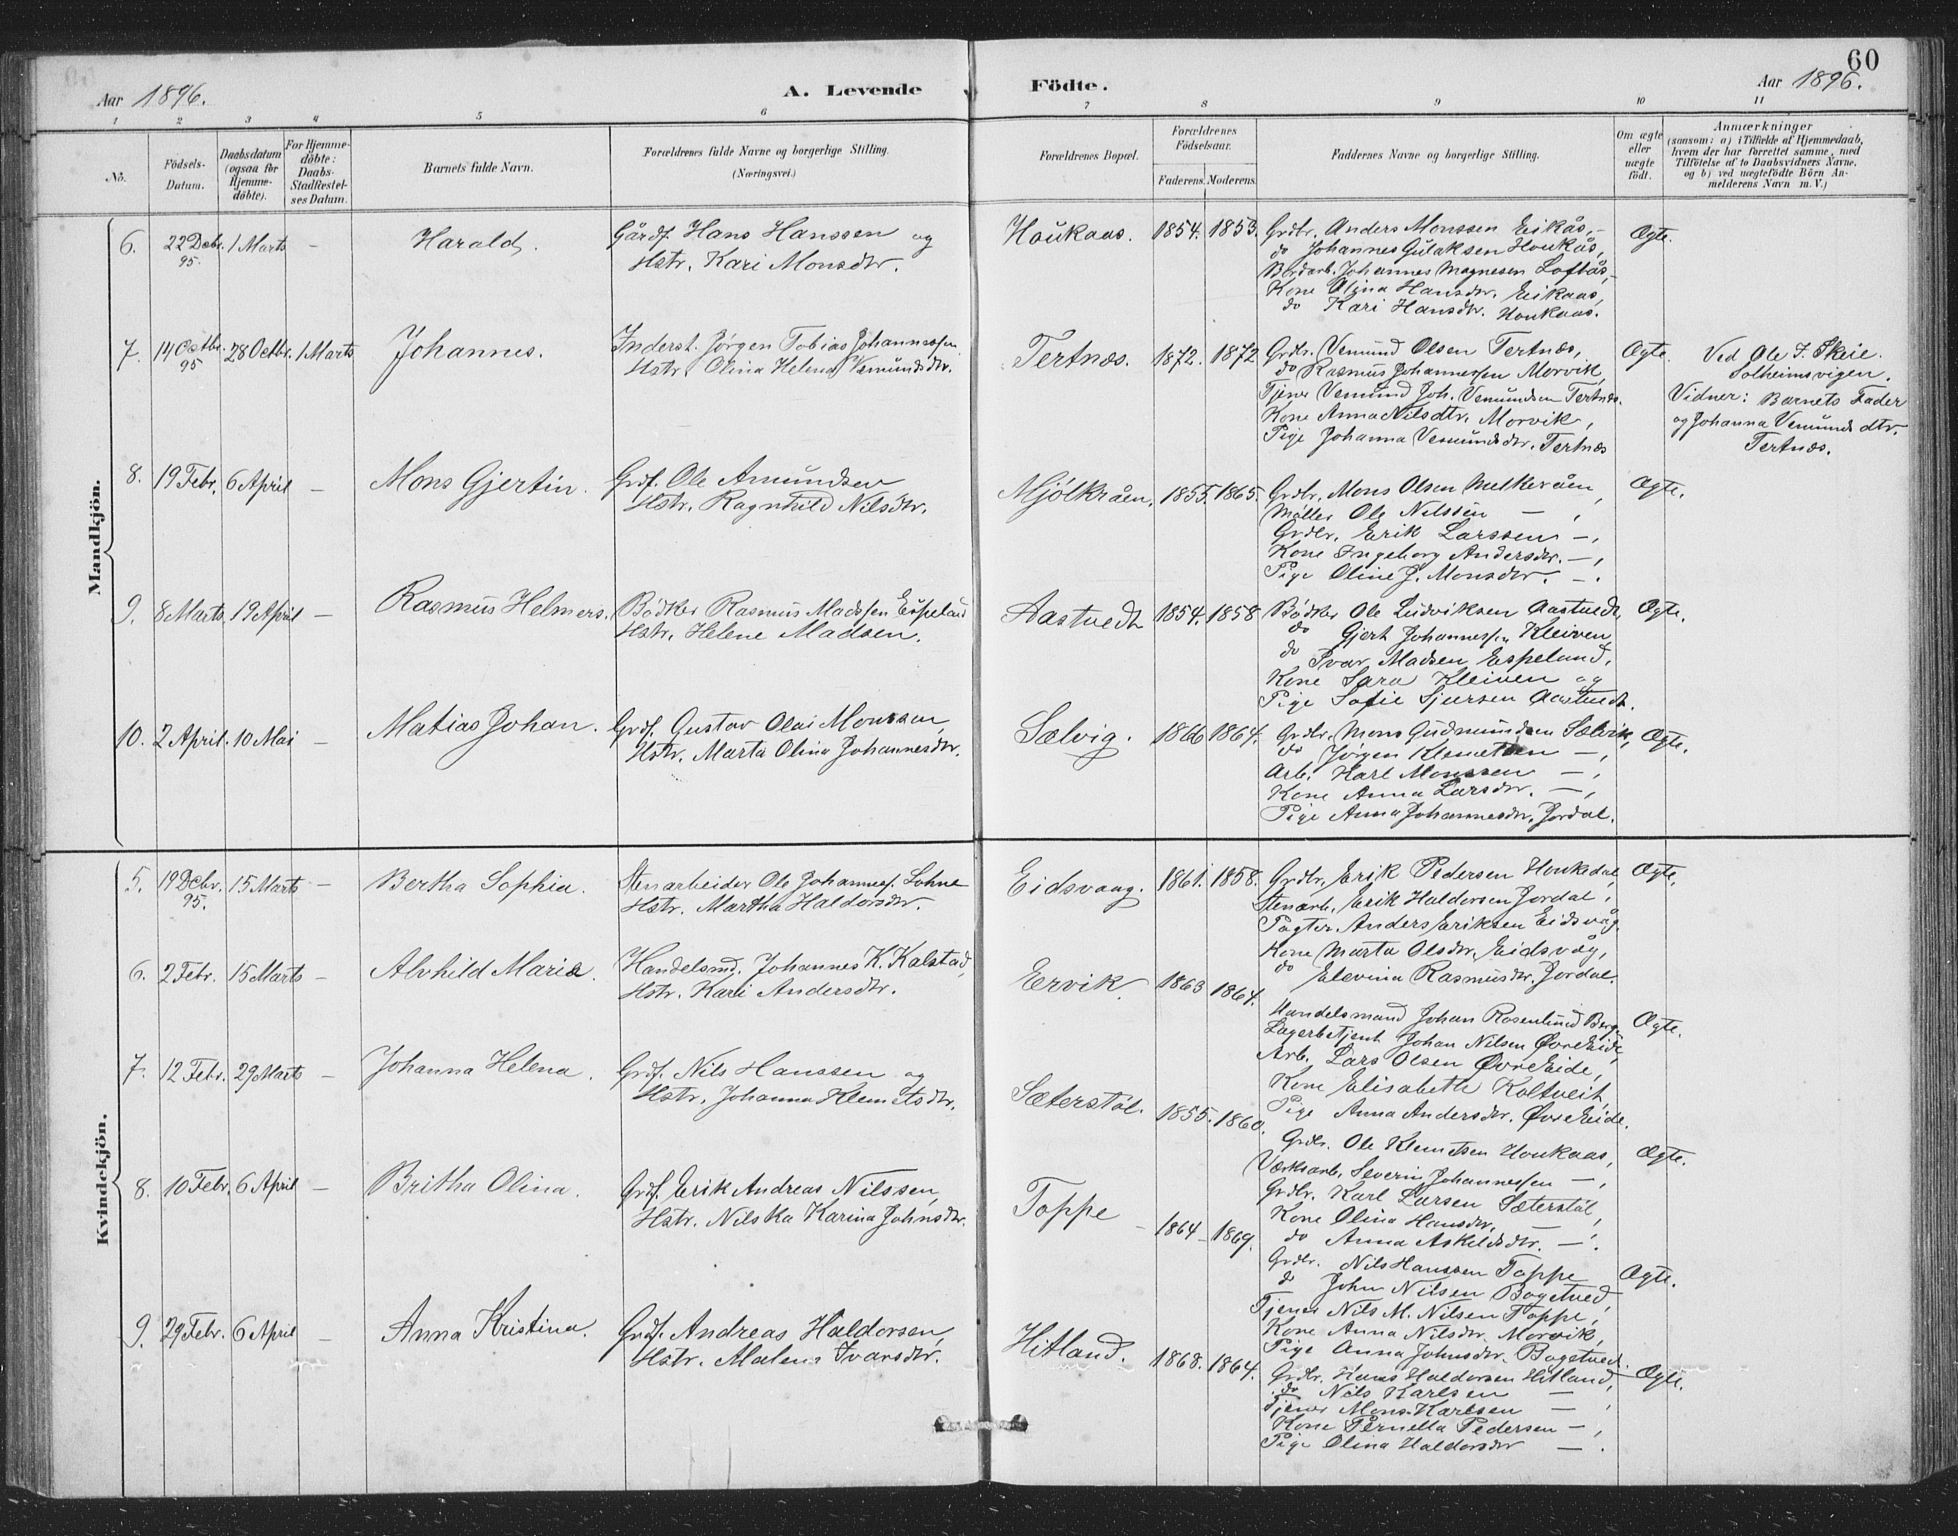 60
Aar 1896. A. Levende Födte. Aar 1896.
1 2 3 4 5 6 7 8 9 10 11
No.
Födsels-
Datum.
Daabsdatum
(ogsaa for
Hjemme-
döbte).
For Hjemme-
döbte:
Daabs-
Stadfæstel-
ses Datum.
Barnets fulde Navn.
Forældrenes fulde Navne og borgerlige Stilling.
(Næringsvei.)
Forældrenes Bopæl.
Forældrenes
Födselsaar.
Faderens. Moderens.
Faddernes Navne og borgerlige Stilling.
Om ægte
eller
uægte
födt.
Anmærkninger
(saasom: a) i Tilfælde af Hjemmedaab,
hvem der har forrettet samme, med
Tilföielse af to Daabsvidners Navne,
og b) ved uægtefödte Börn An-
melderens Navn m. V.)
Mandkjön.
6. 22 Debr. 95. 1 Marts – Harald.
Gårdf. Hans Hanssen og
Hstr. Kari Monsdtr.
Houkaas. 1854. 1853.
Grdbr. Anders Monssen Eikås,
do Johannes Gulaksen Houkås,
Bordarb. Johannes Magnesen Loftås,
Kone Olina Hansdtr. Eikaas,
do Kari Hansdtr. Houkaas.
Ægte.
7. 14 Octbr. 95 28 Octbr. 1 Marts Johannes.
Inderst. Jørgen Tobias Johannessen
Hstr. Olina Helena Vemundsdtr.
Tertnæs. 1872. 1872
Grdbr. Vemund Olsen Tertnæs,
do Rasmus Johannessen Morvik,
Tjener Vemund Joh. Vemundsen Tertnæs.
Kone Anna Nilsdtr. Morvik,
Pige Johanna Vemundsdtr. Tertnæs
Ægte.
Ved Ole J. Skeie.
Solheimsvigen.
Vidner: Barnets Fader
og Johanna Vemundsdtr.
Tertnæs.
8. 19 Febr. 6 April – Mons Gjertin.
Grdf. Ole Amundsen
Hstr. Ragnhild Nilsdtr.
Mjölkråen. 1855. 1865.
Grdbr. Mons Olsen Melkeråen,
Møller Ole Nilssen – ,
Grdbr. Erik Larssen – ,
Kone Ingeborg Andersdtr. – ,
Pige Oline J. Monsdtr. – .
Ægte.
9. 8 Marts 19 April – Rasmus Helmers.
Bødker Rasmus Madssen Espeland
Hstr. Helene Madsen.
Aastvedt 1854. 1858
Bödker Ole Ludviksen Aastvedt,
do Gjert Johannessen Kleiven
do Ivar Madsen Espeland,
Kone Sara Kleiven og
Pige Sofie Sjursen Aastvedt.
Ægte.
10. 2 April. 10 Mai – Matias Johan.
Grdf. Gustav Olai Monssen,
Hstr. Marta Olina Johannesdtr.
Sælvig. 1866 1864.
Grdbr. Mons Gudmundsen Sælvik,
do Jørgen Klemetsen – ,
Arb. Karl Monssen – ,
Kone Anna Larsdtr. – ,
Pige Anna Johannesdtr. Jordal.
Ægte.
Kvindekjön.
5. 19 Debr. 95. 15 Marts – Bertha Sophia.
Stenarbeider Ole Johanness. Lohne
Hstr. Martha Haldorsdtr.
Eidsvaag. 1861. 1858.
Grdbr. Erik Pedersen Houkedal,
Stenarb. Erik Haldorsen Jordal,
Pagter Anders Eriksen Eidsvåg
Kone Marta Olsdtr. Eidsvåg,
do Elevina Rasmusdtr. Jordal.
Ægte.
6. 2 Febr. 15 Marts – Alvhild Maria.
Handelsmd. Johannes K. Kalstad,
Hstr. Kari Andersdtr.
Eervik. 1863 1864.
Handelsmand Johan Rosenlund Berg-
Lagerbetjent Johan Nilsen ØvreEide,
Arb. Lars Olsen ØvreEide,
Kone Elisabeth Koltveit,
Pige Anna Andersdtr. ØvreEide.
Ægte.
7. 12 Febr. 29 Marts – Johanna Helena.
Grdf. Nils Hanssen og
Hstr. Johanna Klemetsdtr.
Sæterstöl. 1855. 1860.
Grdbr. Ole Klemetsen Houkaas,
Værksarb. Severin Johannessen – ,
Grdbr. Karl Larsen Sæterstöl,
Kone Olina Hansdtr. – ,
do Anna Askeldsdtr. – .
Ægte.
8. 10 Febr. 6 April – Britha Olina.
Grdf. Erik Andreas Nilssen,
Hstr. Nilska Karina Johnsdtr.
Toppe – 1864 – 1869.
Grdbr. Nils Hanssen Toppe
do John Nilsen Bogetved,
Tjener Nils M. Nilsen Toppe,
Kone Anna Nilsdtr. Morvik,
Pige Anna Johnsdtr. Bogetved.
Ægte.
9. 29 Febr. 6 April – Anna Kristina.
Grdf. Andreas Haldorsen,
Hstr. Malena Ivarsdtr.
Hitland. 1868. 1864.
Grdbr. Hans Haldorsen Hitland,
do Nils Karlsen –
Tjener Mons Karlsen – ,
Kone Pernella Pedersen – ,
Pige Olina Haldorsdtr – .
Ægte.